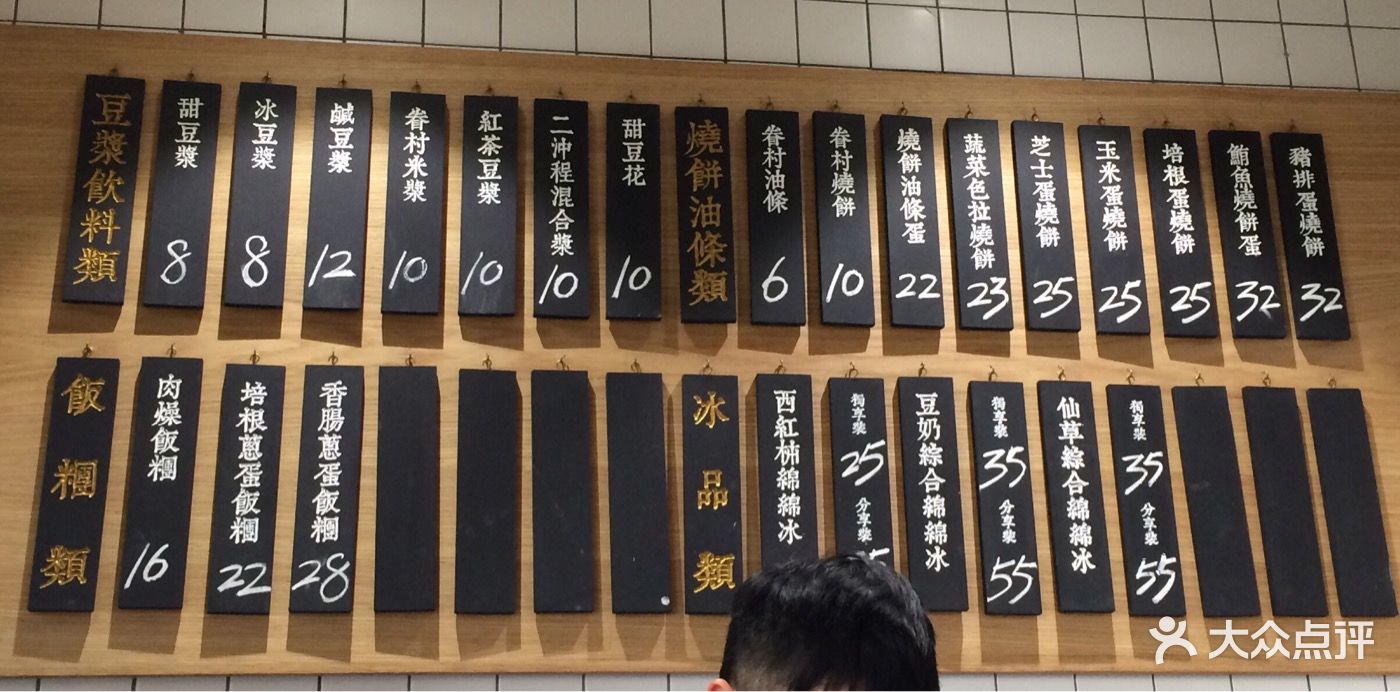 豆漿飲料類
甜豆漿 8
冰豆漿 8
鹹豆漿 12
眷村米漿 10
紅茶豆漿 10
二沖程混合漿 10
甜豆花 10
燒餅油條類
眷村油條 6
眷村燒餅 10
燒餅油條蛋 22
蔬菜色拉燒餅 23
芝士蛋燒餅 25
玉米蛋燒餅 25
培根蛋燒餅 25
鮪魚燒餅蛋 32
豬排蛋燒餅 32
飯糰類
肉燥飯糰 16
培根蔥蛋飯糰 22
香腸蔥蛋飯糰 28
冰品類
西紅柿綿綿冰
獨享裝 25 分享裝
豆奶綜合綿綿冰
獨享裝 35 分享裝 55
仙草綜合綿綿冰
獨享裝 35 分享裝 55
大众点评